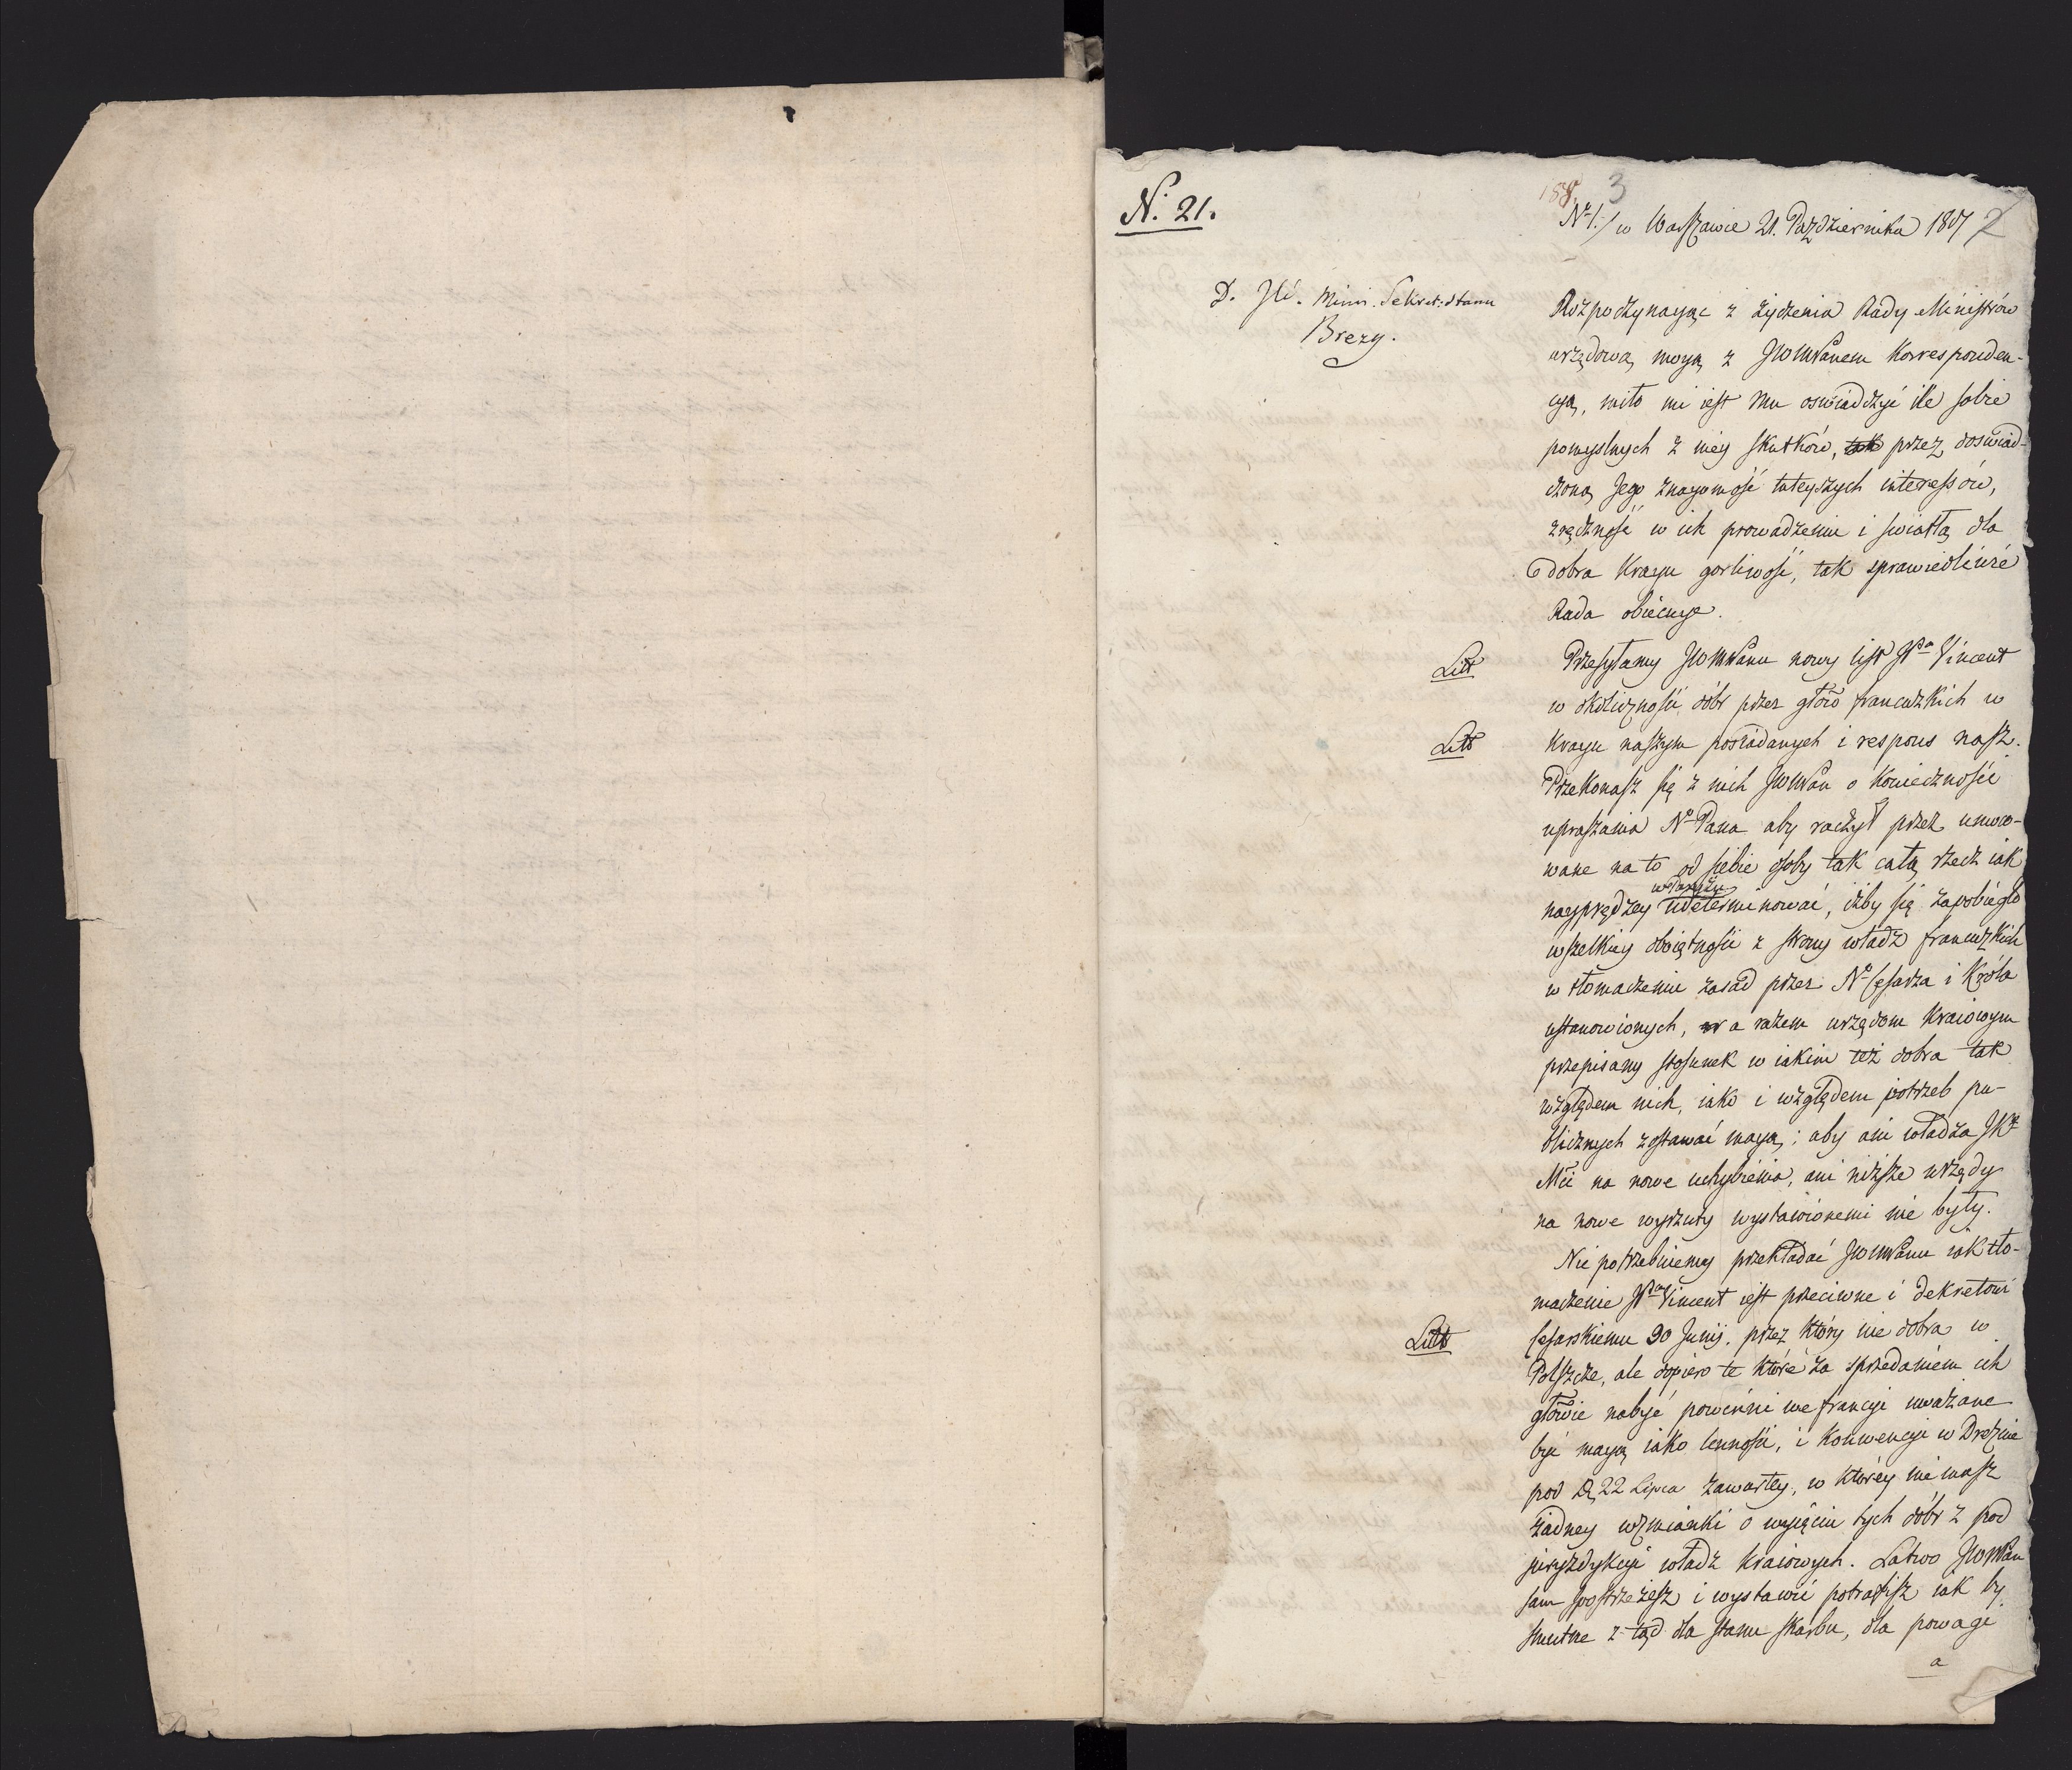 N. 21.
3
N 1. / w Warszawie 21. Października 1807
2
D. JW. Minis. Sekret: stanu
Brezy.
Rozpoczynaiąc z życzenia Rady Ministrów
urzędową moyą z JWWPanem Korresponden-
cyą, miło mi iest Mu oswiadczyć ile sobie
pomyslnych z niey skutków, tak przez doswiad-
czoną Jego znaiomość tuteyszych interessów,
zręczność w ich prowadzeniu i swiatłą dla
dobra Kraju gorliwość, tak sprawiedliwie
Rada obiecuye.
Litt
Przesyłamy JWWPanu nowy list JPa Vincent
w okoliczności dóbr przez głów francuzkich w
Litt
Kraju naszym posiadanych i respons nasz.
Przekonasz się z nich JWWPan o Konieczności
upraszania No Pana aby raczył przez umoco-
wane na to od siebie osoby tak całą rzecz iak
nayprędzey w Paryżu udeterminować, iżby się zapobiegło
wszelkiey obojętności z strony władz francuzkich
w tłomaczeniu zasad przez No Cesarza i Króla
ustanowionych, a razem urzędom Kraiowym
przepisany stosunek w iakim też dobra tak
względem nich, iako i względem potrzeb pu-
blicznych zostawać mayą; aby ani władza JKr
Mci na nowe uchybienia, ani niższe urzędy
na nowe wyrzuty wystawionemi nie były.
Nie potrzebuiemy przekładać JWWPanu iak tło-
maczenie JPa Vincent iest przeciwne i dekretowi
Litt
Cesarskiemu 30 Junij. przez który nie dobra w
Polszcze, ale dopiero te które za sprzedaniem ich
głowie nabyć powinni we francyi uważane
być mayą iako lenności, i Konwencyi w Dreznie
pod D. 22 Lipca zawartey, w którey nie masz
żadney wzmianki o wyięciu tych dóbr z pod
juryzdykcyi władz kraiowych. Latwo JWWPan
sam spostrzeżesz i wystawić potrafisz iak by
smutne z tąd dla stanu skarbu, dla powagi
a